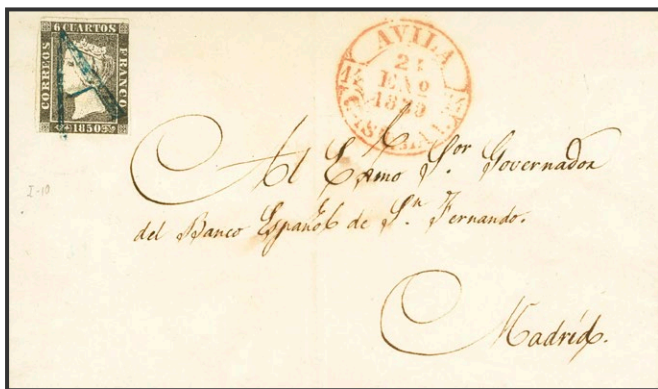 6 CUARTOS
CORREOS
FRANCO
1850
AVILA
ENº
Al Exmo Sor Governador
del Banco Español de Sn. Fernando.
Madrid.